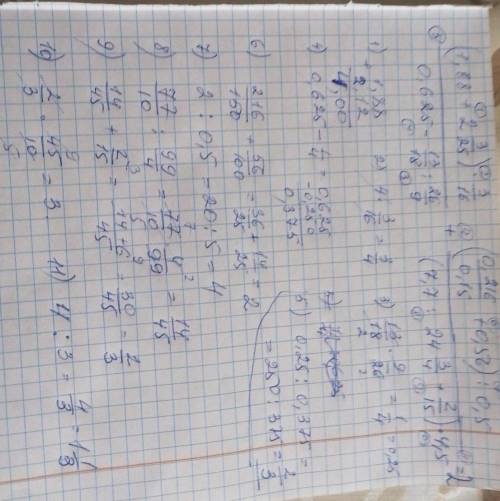 (1,88 + 2 3/25) · 3/16 / 0,625 - 13/18 : 26/9 + (0,216/0,15 + 0,56) : 0,5 / (7,7 : 24 3/4 + 2/15) · 4,5 = 2
1) 1,88 + 2,12 = 4,00 2) 4 · 3/16 = 3/4 3) 13/18 · 9/26 = 1/4 = 0,25
4) 0,625 - 1/4 = 0,625 - 0,250 = 0,375 5) 0,25 : 0,375 =
= 250 : 375 = 2/3
6) 216/150 + 56/100 = 36/25 + 14/25 = 2
7) 2 : 0,5 = 20 : 5 = 4
8) 77/10 : 99/4 = 77/10 · 4/99 = 14/45
9) 14/45 + 2/15 = 14+6/45 = 30/45 = 2/3
10) 2/3 · 45/10 = 3 11) 4 : 3 = 4/3 = 1 1/3